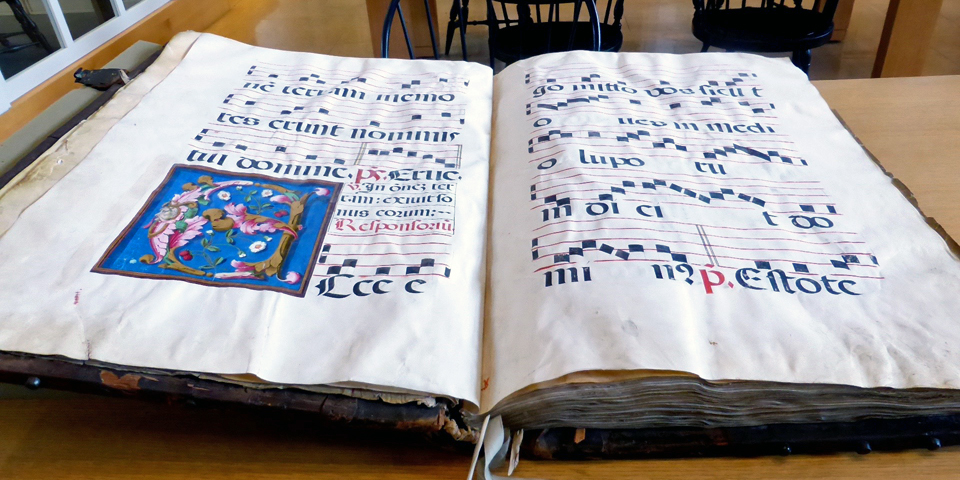 ne terram memo
res erunt nominis
tui domine. p. Eruc.
V. In õnez ter
ram: exiuit so
nus eorum:-
Responsoriu.
Ecce e
go mitto vos sicut
o ues in medi
o lupo ru
m di ci t do
mi n? p. Estote